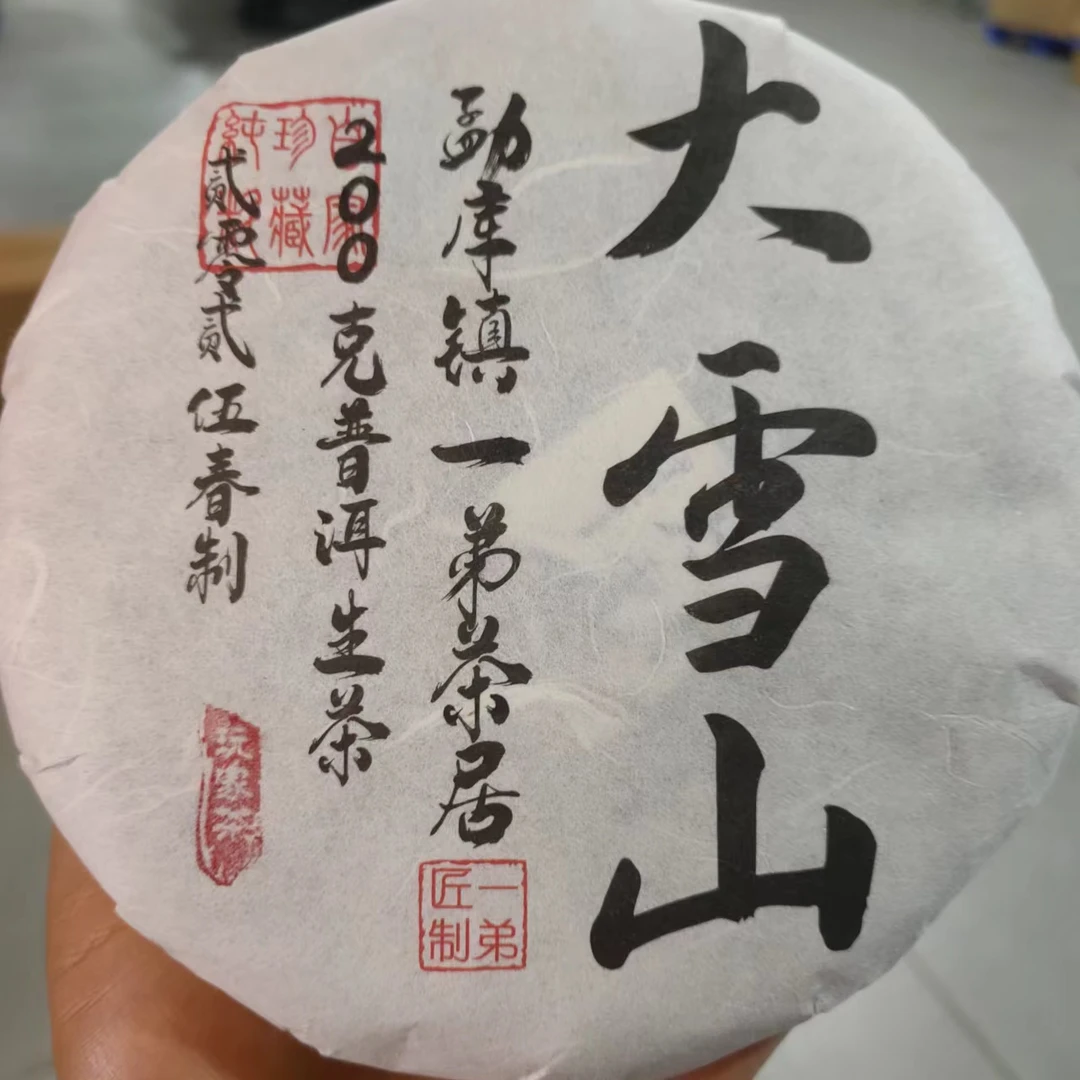 大雪山
勐库镇一弟茶居
一弟
匠制
200克普洱生茶
珍藏
贰零贰伍春制